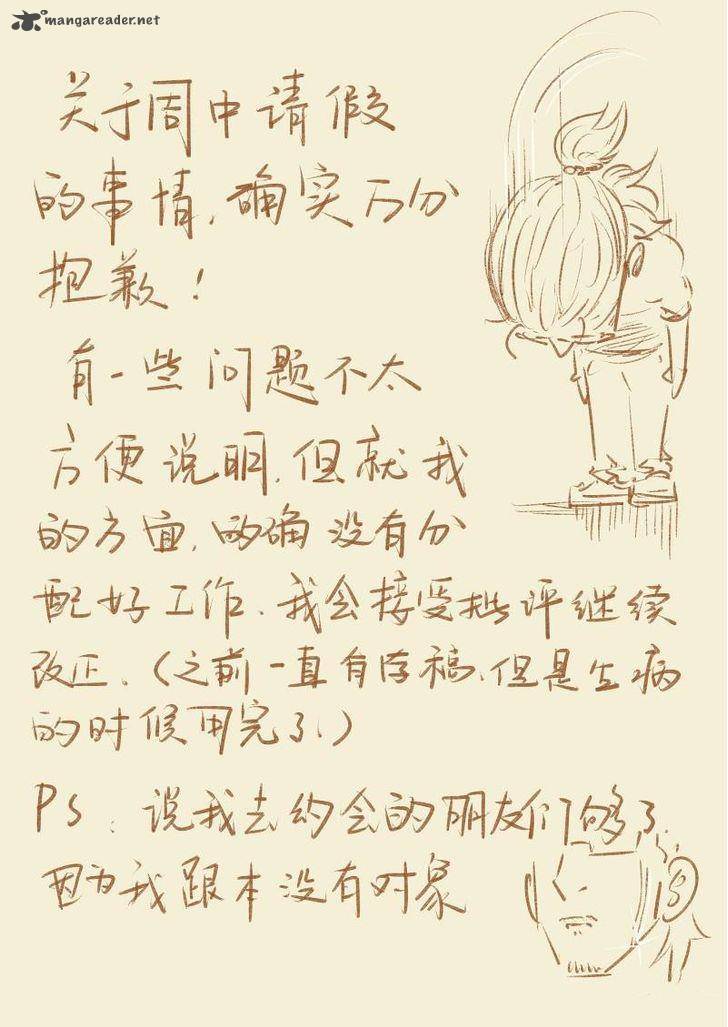 mangareader.net
关于周中请假
的事情,确实万分
抱歉!
有一些问题不太
方便说明,但就我
的方面,的确没有分
配好工作、我会接受批评继续
改正.(之前一直有存稿,但是生病
的时候用完了.)
PS:说我去约会的朋友们够了.
因为我跟本没有对象